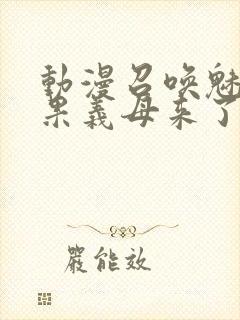 動漫召喚魅
果義母來了
嚴能效